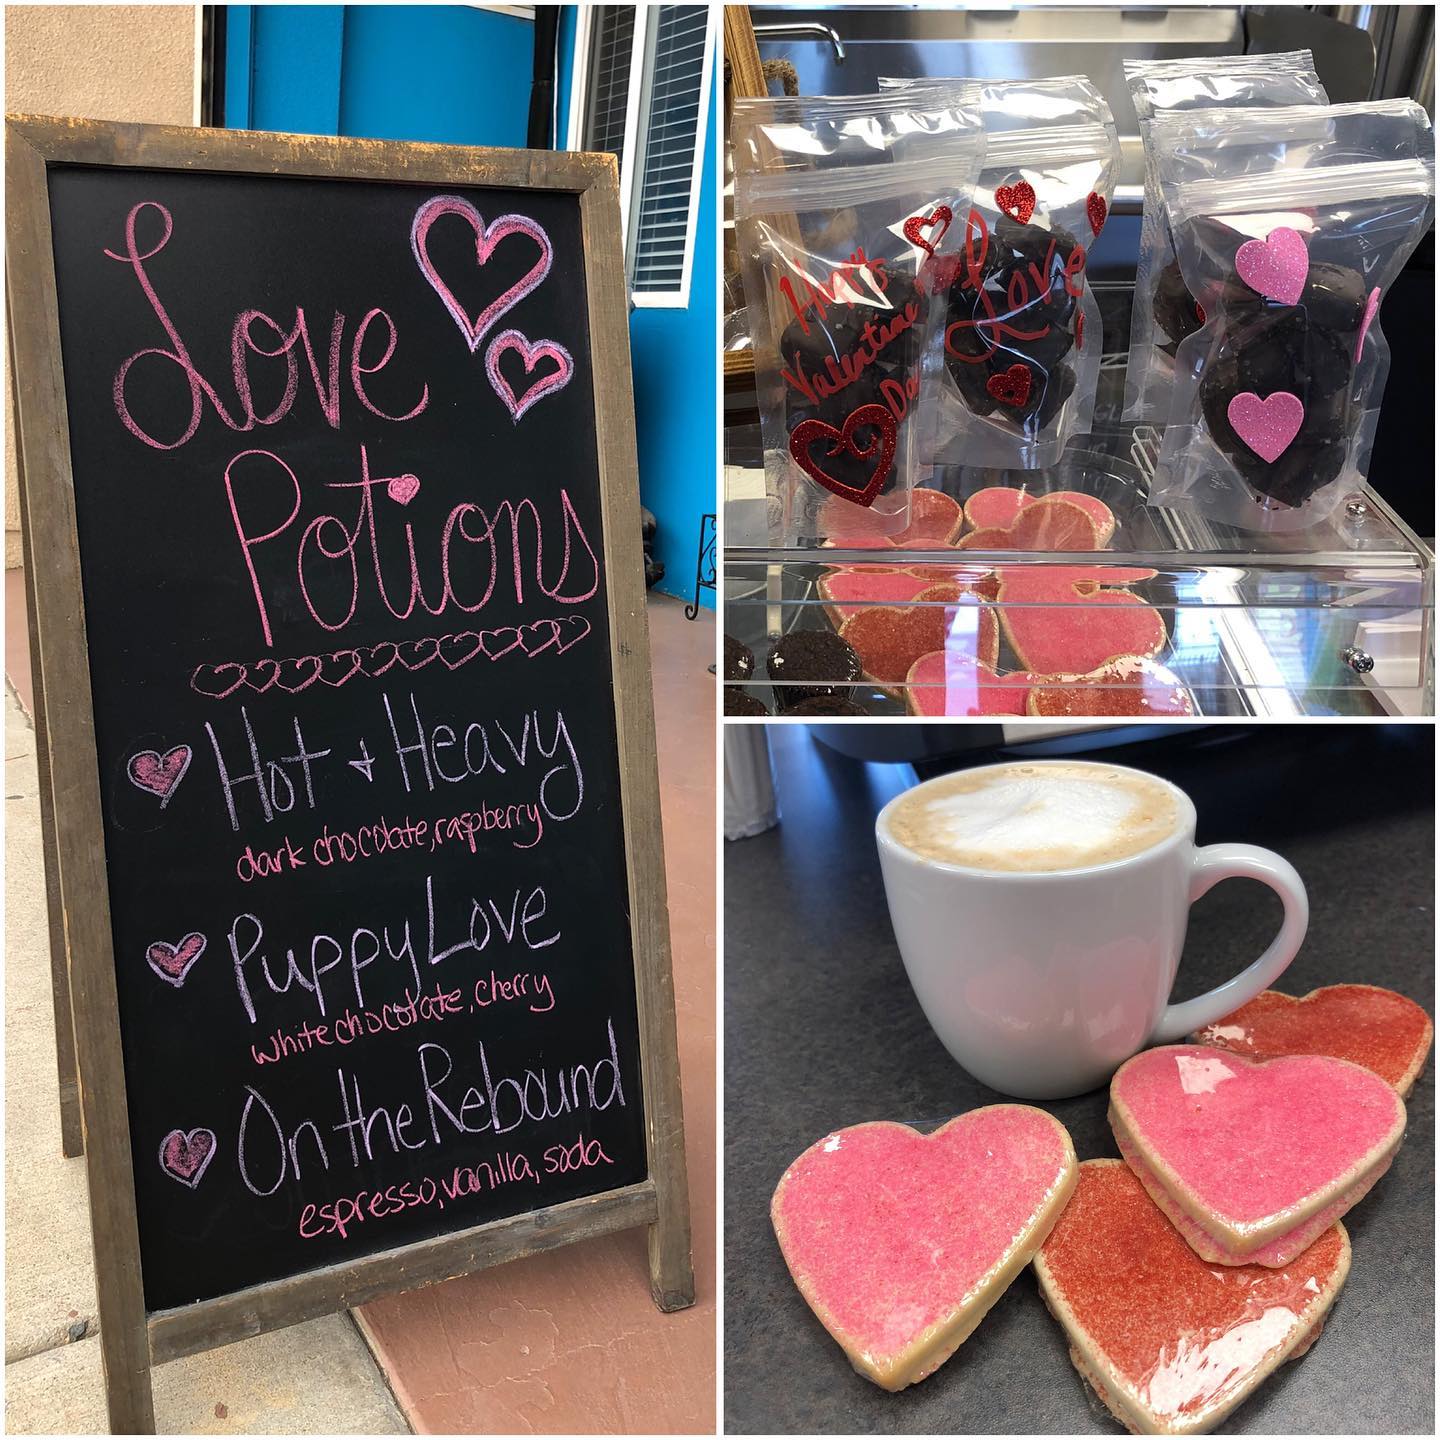 Love
Potions
Hot + Heavy
dark chocolate, raspberry
Puppy Love
white chocolate, cherry
On the Rebound
espresso, vanilla, soda
Happy
Valentine's
Da
Love